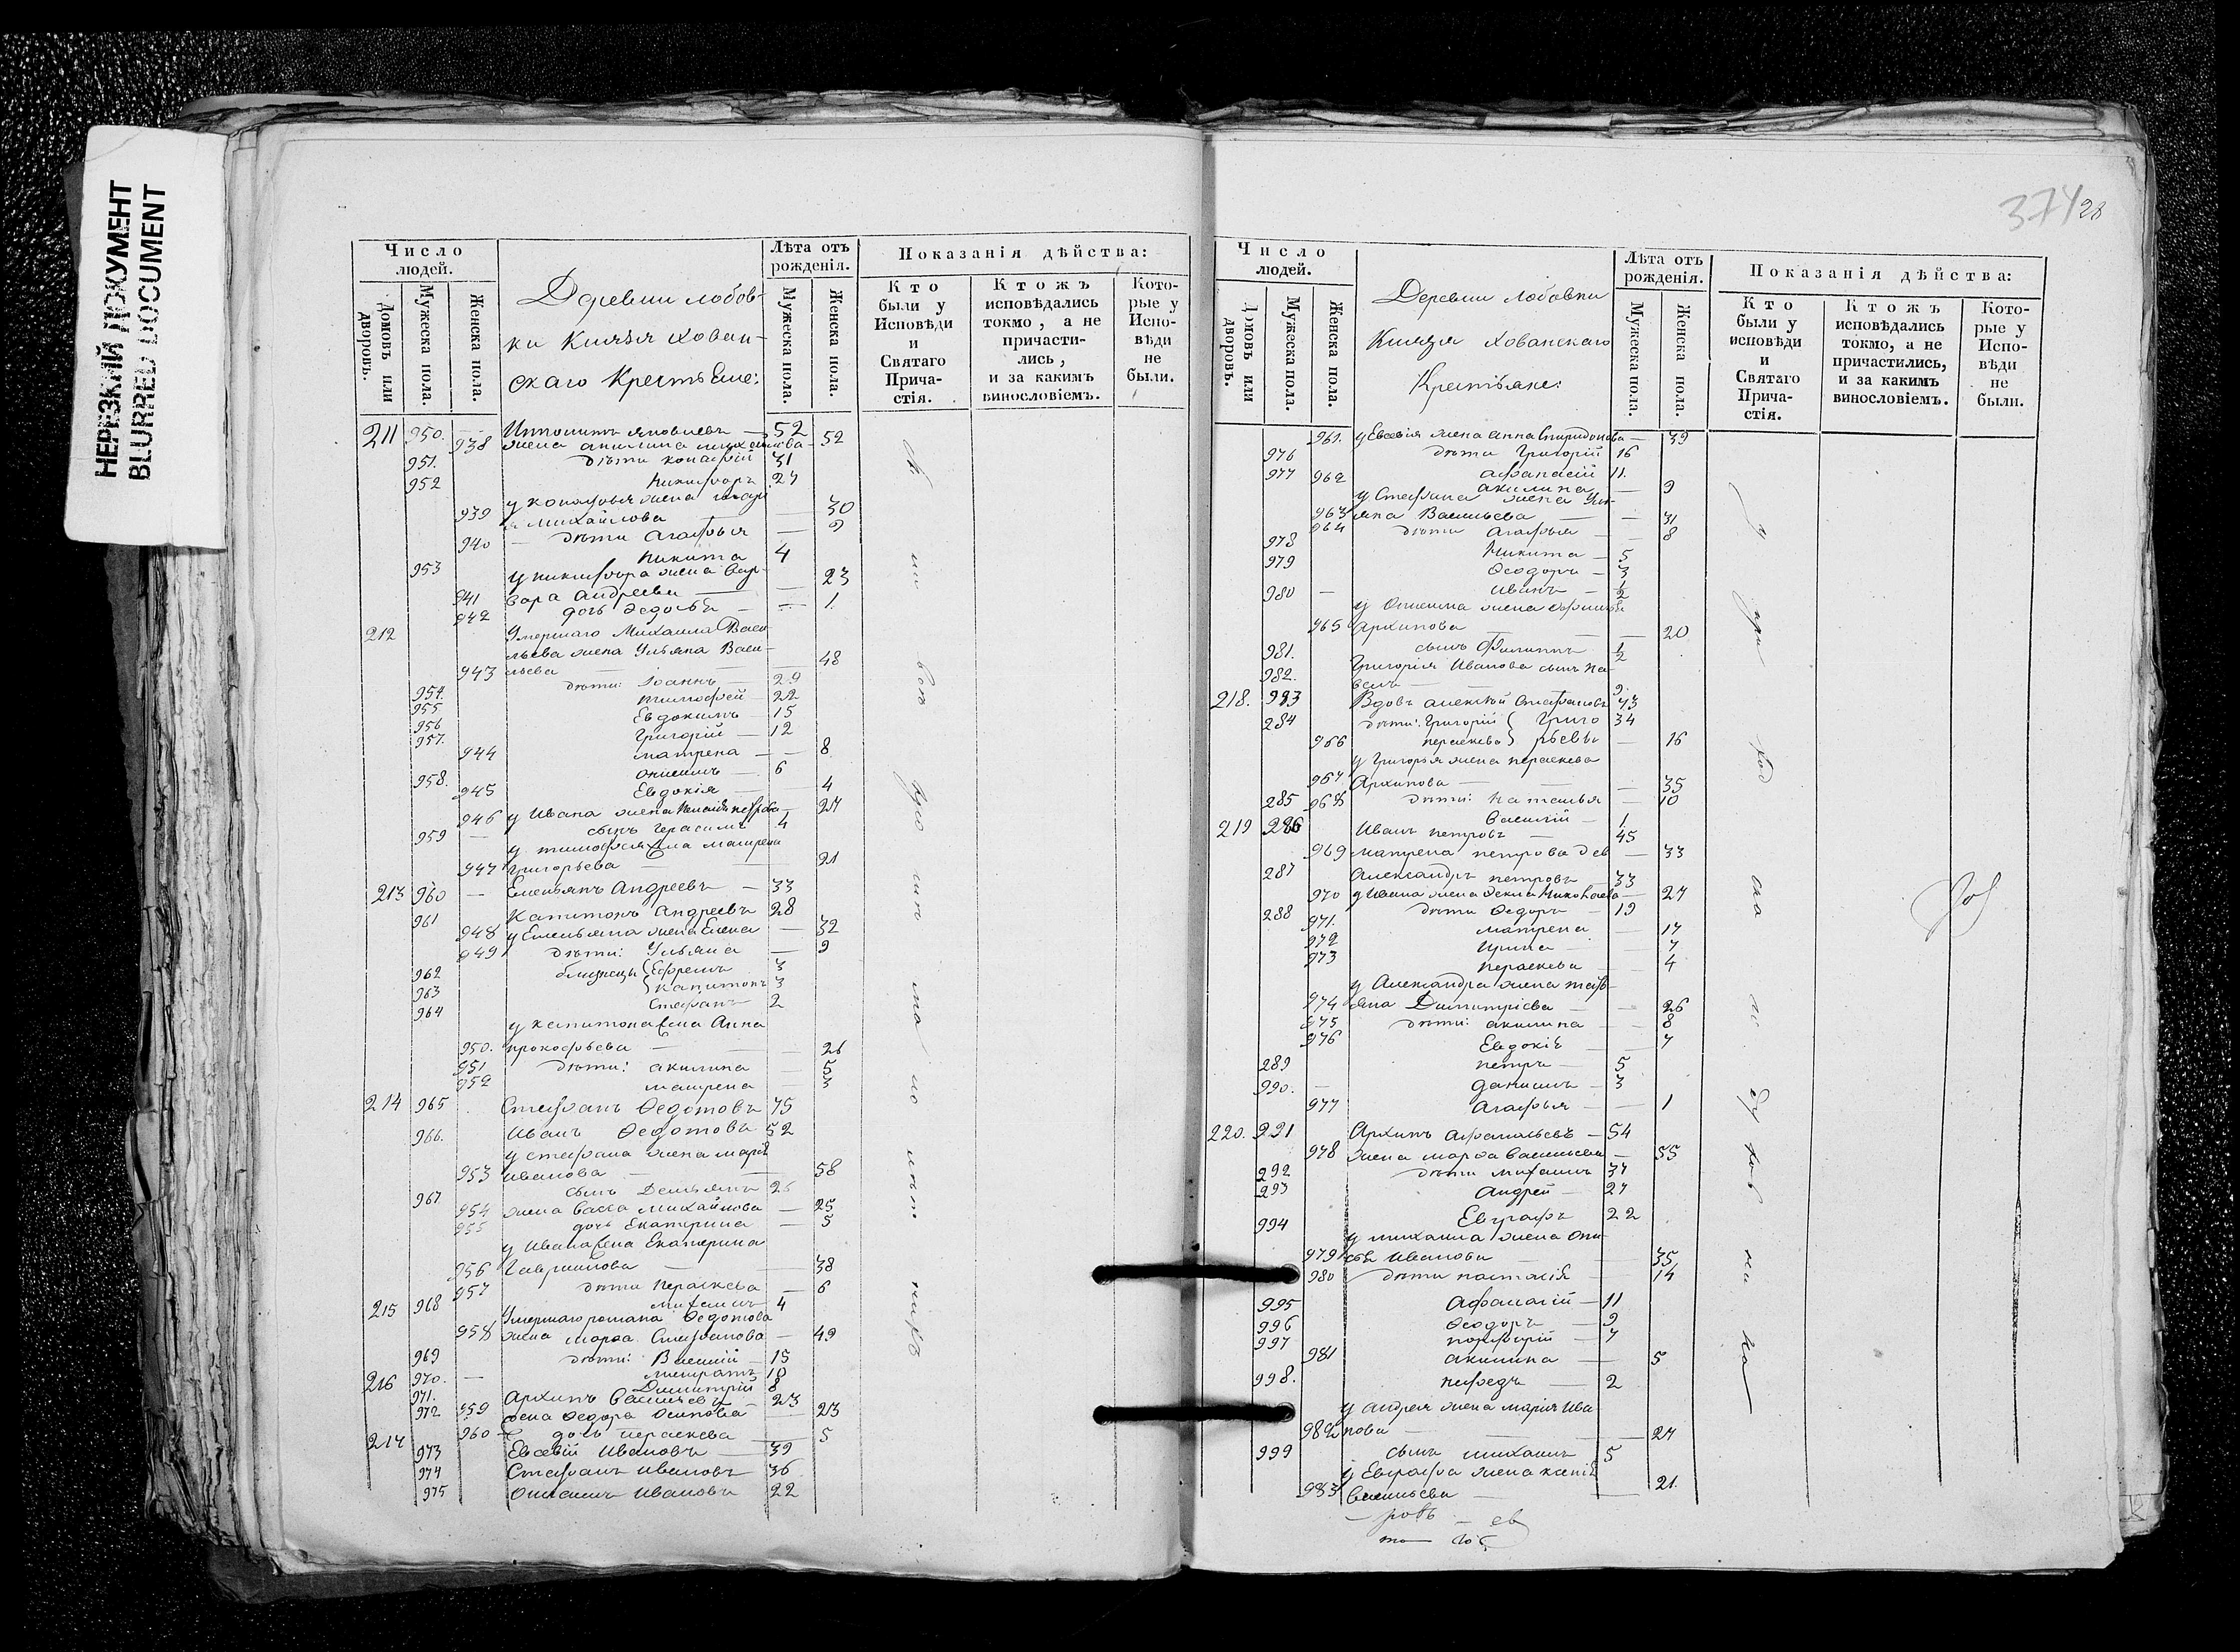 НЕРЕЗКИЙ ДОКУМЕНТ
BLURRED DOCUMENT
Число людей.
Домовъ или дворовъ.
Мужеска пола.
Женска пола.
Деревни лобов-
ки Князя хован-
скаго Крестьяне:
Лѣта отъ рожденія.
Мужеска пола.
Женска пола.
Показанія дѣйства:
Кто были у Исповѣди и Святаго Прича-стія.
Ктожъ исповѣдались токмо, а не причасти-лись, и за какимъ винословіемъ.
Кото-рые у Испо-вѣди не были.
211 950. Ипполитъ яковлевъ — 52
938 жена акилина 52
951. дѣти 31
952 Никифоръ 27
939 михайлова — 30
940 — дѣти Агафья — 9
953 Никита 4
у никифора жена Вар-
941 вара Андреева — 23
942 дочь Федосья — 1.
212 Умершаго Михаила Васи-
льева жена Ульяна Васи-
943 льева — 48
954. дѣти: Іоаннъ — 29
955 тимофей — 22
956 Евдокимъ — 15
957. Григорій — 12
944 матрена — 8
958. онисимъ — 6
945 Евдокія — 4
946 у Ивана жена петрова — 27
959 — сынъ Герасимъ 4
у тимофея жена матрена
947 Григорьева — 21
213 960 — Емельянъ Андреевъ — 33
961 Капитонъ Андреевъ 28
948 у Емельяна жена Елена — 32
949 дѣти: Ульяна — 9
962 близнецы Ефремъ 3
963 капитонъ 3
964 Стефанъ 2
у капитона жена Анна
950. прокофьева — 26
951 дѣти: акилина — 5
952 матрена — 3
214 965 Стефанъ Ѳедотовъ 75
966. Иванъ Ѳедотовъ 52
у стефана жена марія
953 иванова — 58
967 сынъ Демьянъ 26
954 жена васса михайлова — 25
955 дочь Екатерина — 5
у Ивана жена Екатерина
956 Гавриилова — 38
957 дѣти Параскева — 6
968 михаилъ 4
215 Умершаго романа Ѳедотова
958 жена марѳа Стефанова — 49
969 дѣти: Василій — 15
970. — 10
971. Димитрій 8
216 972 Архипъ Васильевъ 23
959 жена Ѳедора Осипова — 23
960 дочь параскева — 5
217 973 Евсевій Ивановъ — 39
974 Стефанъ Ивановъ 36
975 Онисимъ Ивановъ 22
374 28
Число людей.
Домовъ или дворовъ.
Мужеска пола.
Женска пола.
Деревни лобовки
Князя Хованскаго
Крестьяне:
Лѣта отъ рожденія.
Мужеска пола.
Женска пола.
Показанія дѣйства:
Кто были у исповѣди и Святаго Прича-стія.
Ктожъ исповѣдались токмо, а не причастились, и за какимъ винословіемъ.
Кото-рые у Испо-вѣди не были.
961. у Евсевія жена Анна Спиридонова — 39
976 дѣти Григорій 16
977 афанасій 11.
962 акилина — 9
у Стефана жена Уль-
963 яна Васильева — 31
964 дѣти Агафья — 8
978 Никита — 5
979 Ѳеодоръ — 3
980 — иванъ — 1/2
у Онисима жена
965 Архипова — 20
981. сынъ Филиппъ 1/2
Григорія Иванова сынъ Па-
982. велъ — 9.
218. 983 Вдовъ алексѣй Стефановъ 73
284 дѣти: Григорій Григо 34
966 параскева рьевы — 16
у Григорья жена параскева
967 Архипова — 35
968 дѣти: Наталья — 10
285 Василій — 1
219 286 Иванъ петровъ 45
969 матрена петрова дев — 33
287 Александръ петровъ — 33
970 у Ивана жена Ѳекла Николаева — 27
288 дѣти Ѳедоръ — 19
971. матрена — 17
972 Ирина — 7
973 параскева — 4
у Александра жена тать-
974 яна Димитріева — 26
975 дѣти: акилина — 8
976 Евдокія — 7
289 петръ — 5
990. — даниилъ — 3
977 Агафья — 1
220. 291 Архипъ афанасьевъ — 54
978 жена марѳа васильева — 55
292 дѣти михаилъ 37
293 Андрей — 27
994 Евграфъ 22
у михаила жена
979 Иванова — 35
980 дѣти настасія — 14
995 Афанасій — 11
996 Ѳеодоръ — 9
997 порфирій — 7
981 акилина — 5
998. — 2
у андрея жена марія Ива
982 нова — 27
999 сынъ михаилъ 5
у Евграфа жена ксенія
983 васильева — 21.